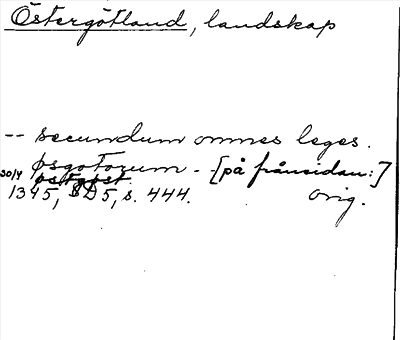 Östergötland, landskap
-- secundum omnes leges.
osgotorum - - [på frånsidan:]
30/4 ostgöt
1345, SD5, s. 444. orig.